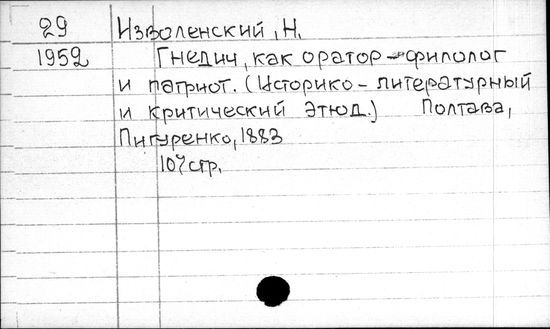 29 Изволенский, Н.
1952 Гнедич, как оратор-филолог
и патриот. (Историко-литературный
и критический этюд.) Полтава,
Пигуренко, 1883
107стр.